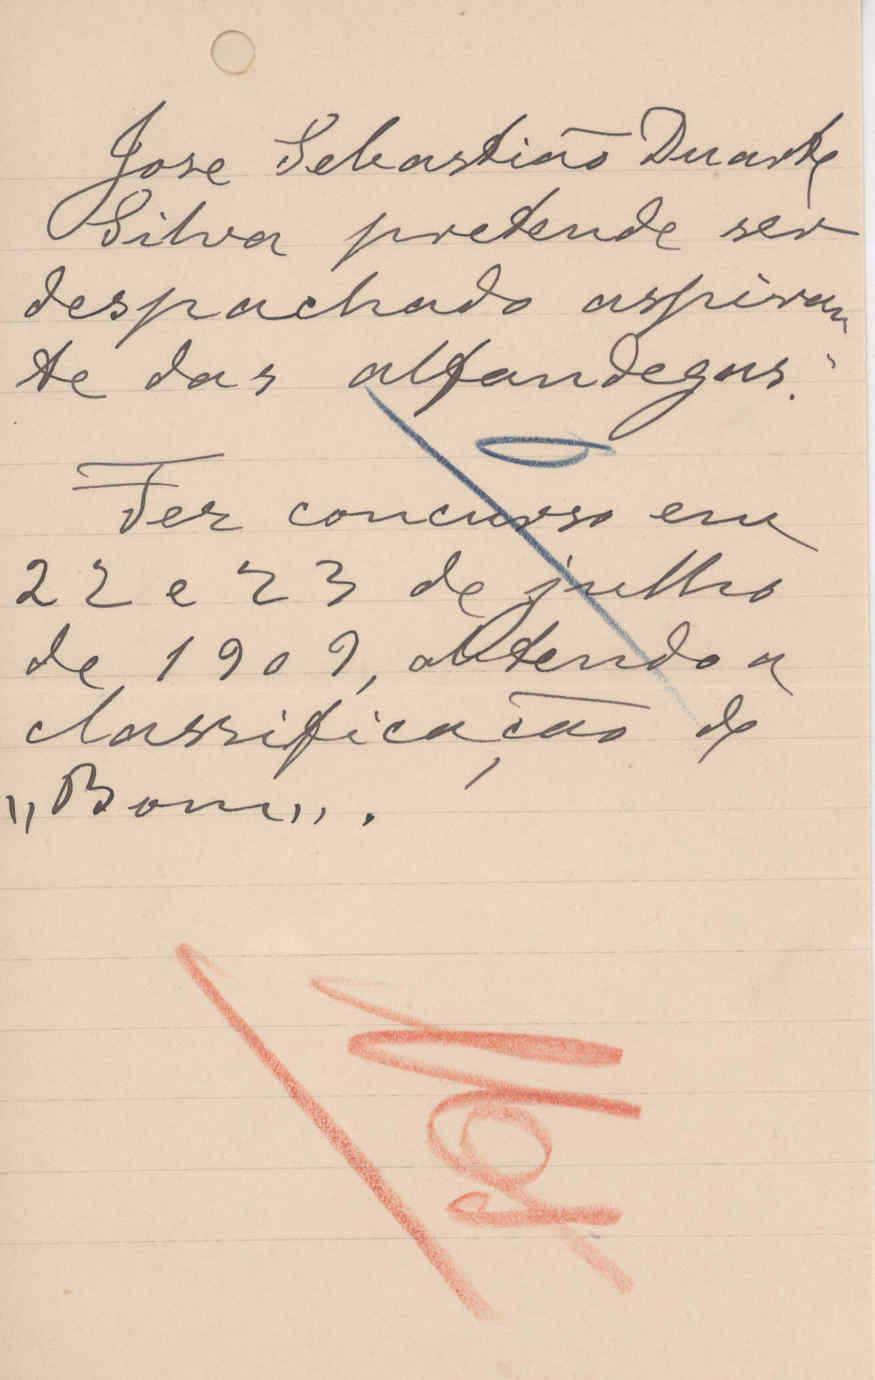 Jose Sebastião Duarte
Silva pretende ser
despachado aspiran
te das alfandegas.
Fez concurso em
22 e 23 de julho
de 1909, obtendo a
classificação de
"Bom".